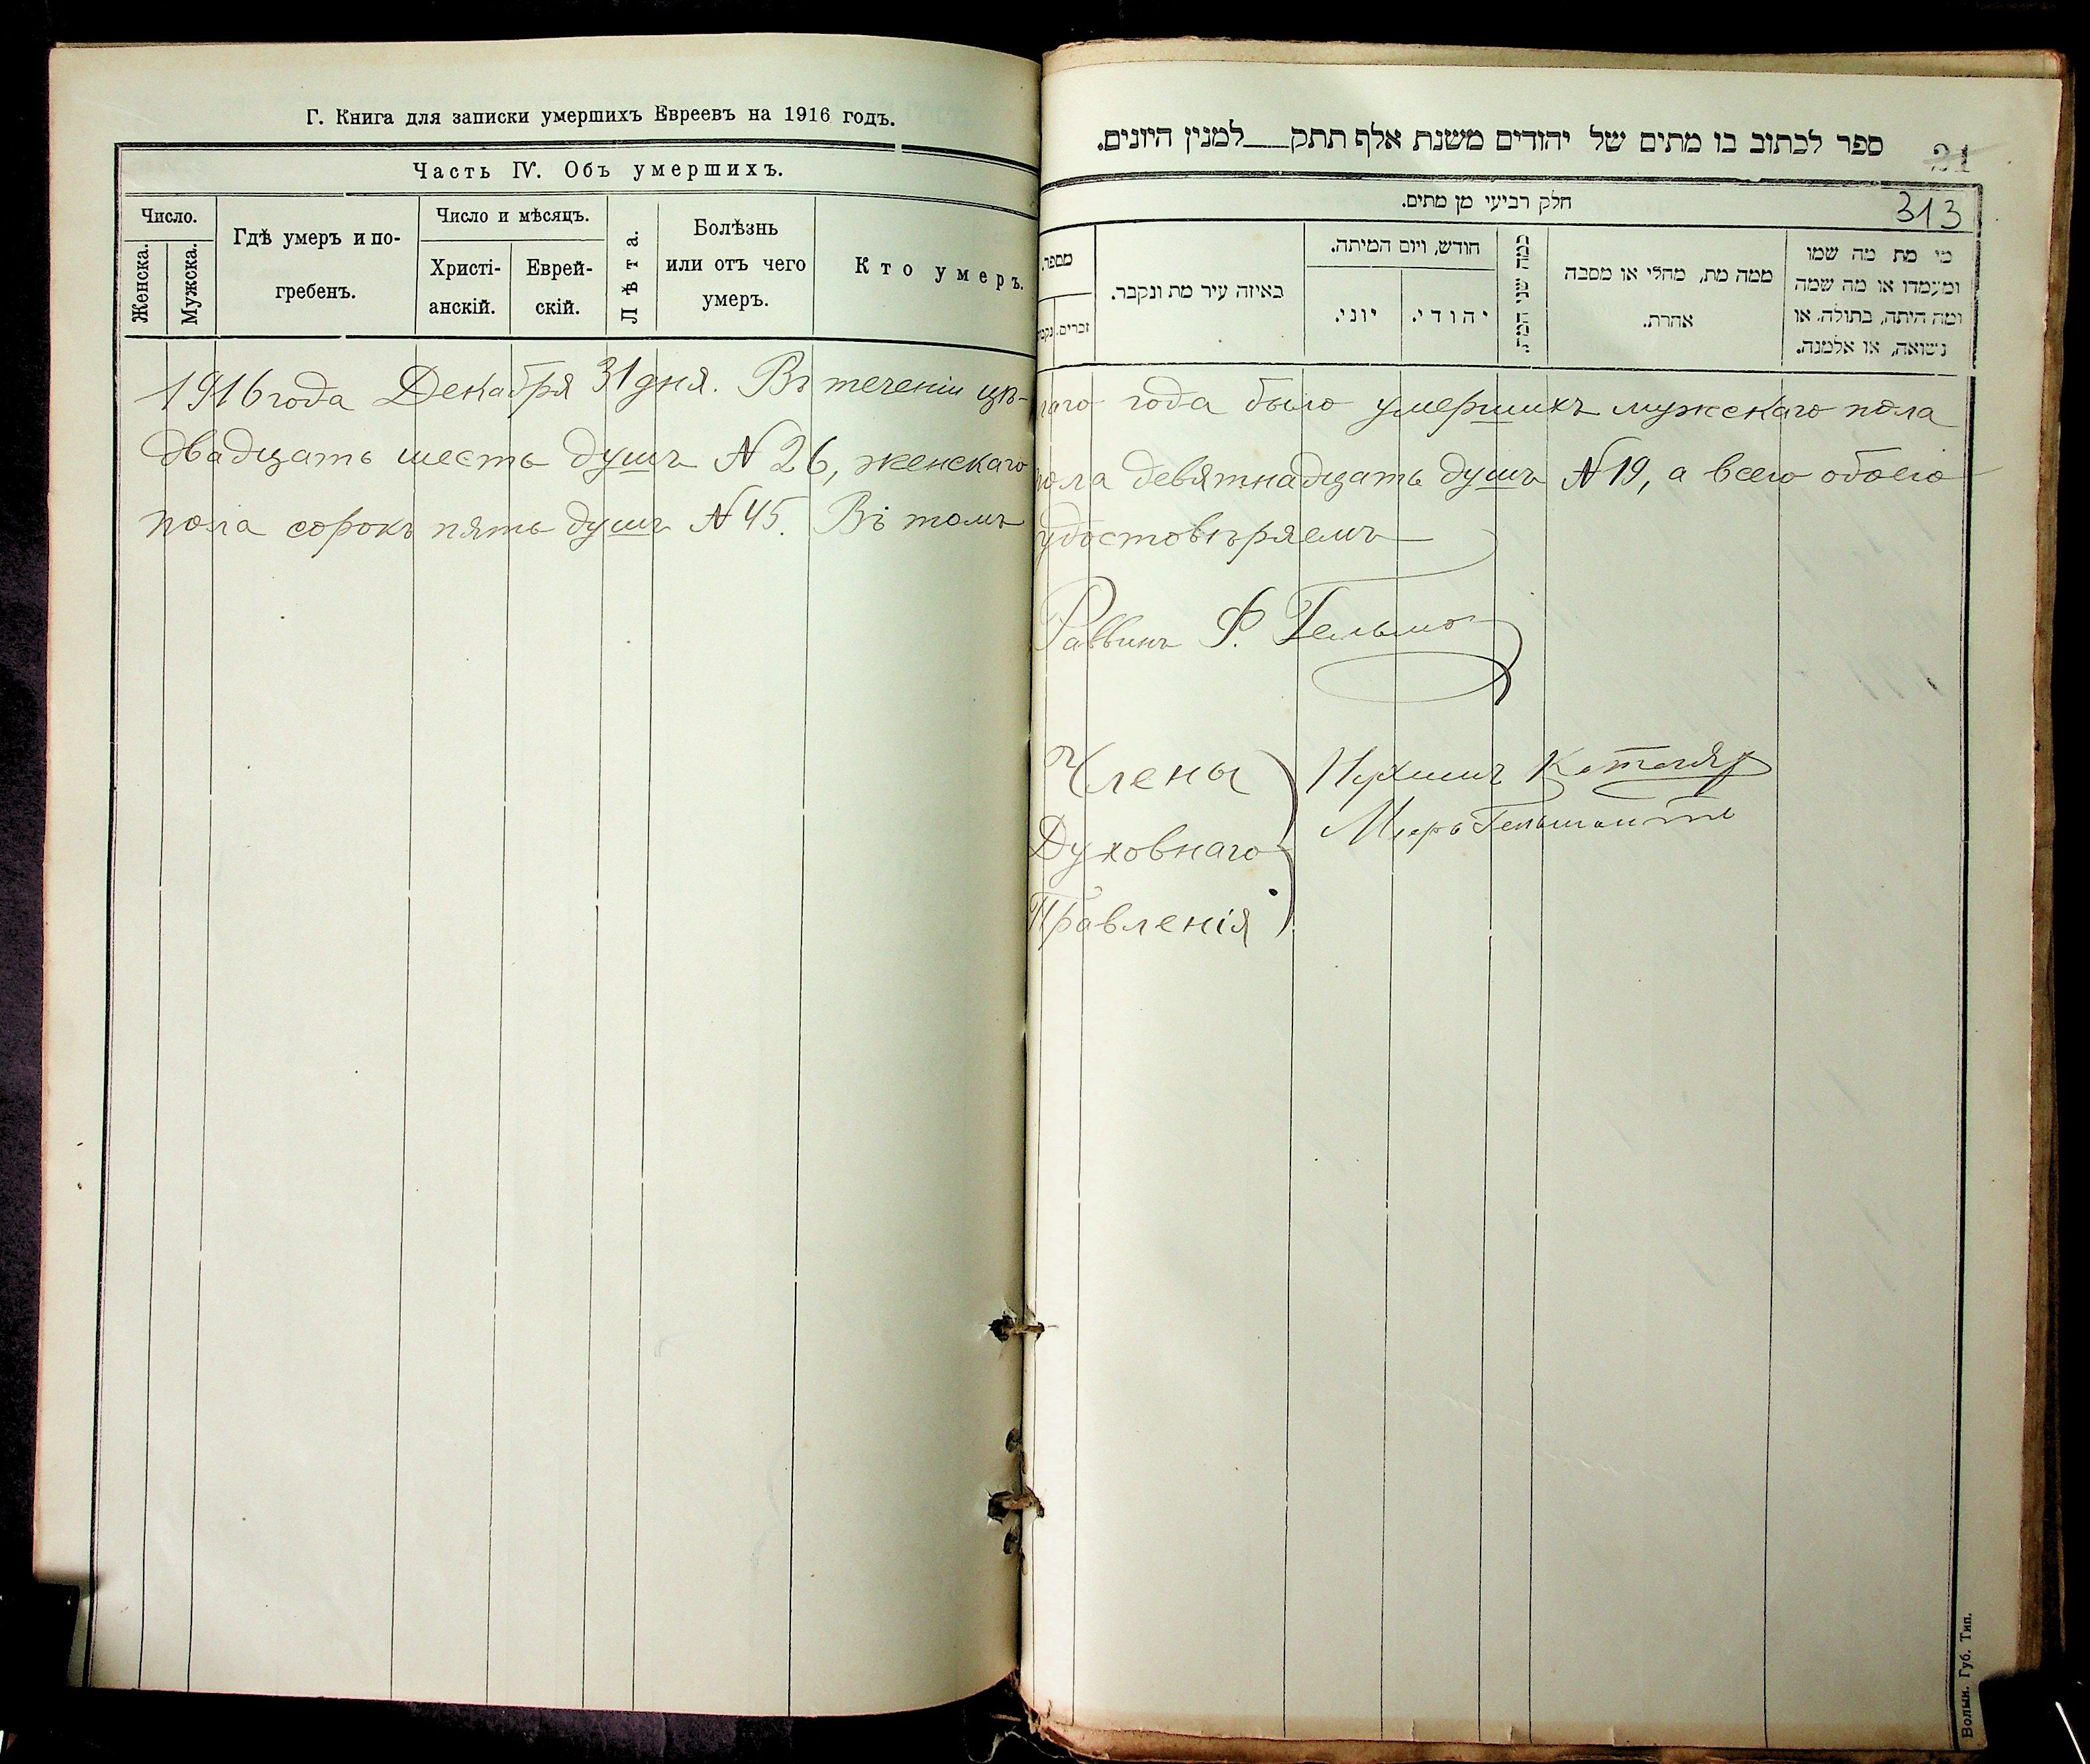 Г. Книга для записки умершихъ Евреевъ на 1916 годъ.
Часть IV. Объ умершихъ.
Число.
Женска.
Мужска.
Гдѣ умеръ и по-
гребенъ.
Число и мѣсяцъ.
Христі-
анскій.
Еврей-
скій.
Лѣта.
Болѣзнь
или отъ чего
умеръ.
Кто умеръ.
ספר לכתוב בו מתים של יהודים משנת אלף תתק___למנין היונים.
31
חלק רביעי מן מתים.
313
מספר.
זכרים.
באיזה עיר מת ונקבר.
חודש, ויום המיתה.
יוני.
יהודי.
כמה שני המת.
ממה מת, מחלי או מסבה
אחרת.
מי מת מה שמו
ומעמדו או מה שמה
ומה היתה, בתולה, או
נשואה, או אלמנה.
1916 года Декабря 31 дня. Въ теченіи цѣ-лаго года было умершихъ мужскаго пола
двадцать шесть душъ N 26, женскаго пола девятнадцать душъ N 19, а всего обоего
пола сорокъ пять душъ N 45. Въ томъ удостовѣряемъ
Раввинъ
Члены
Духовнаго
Правленія
Волын. Губ. Тип.